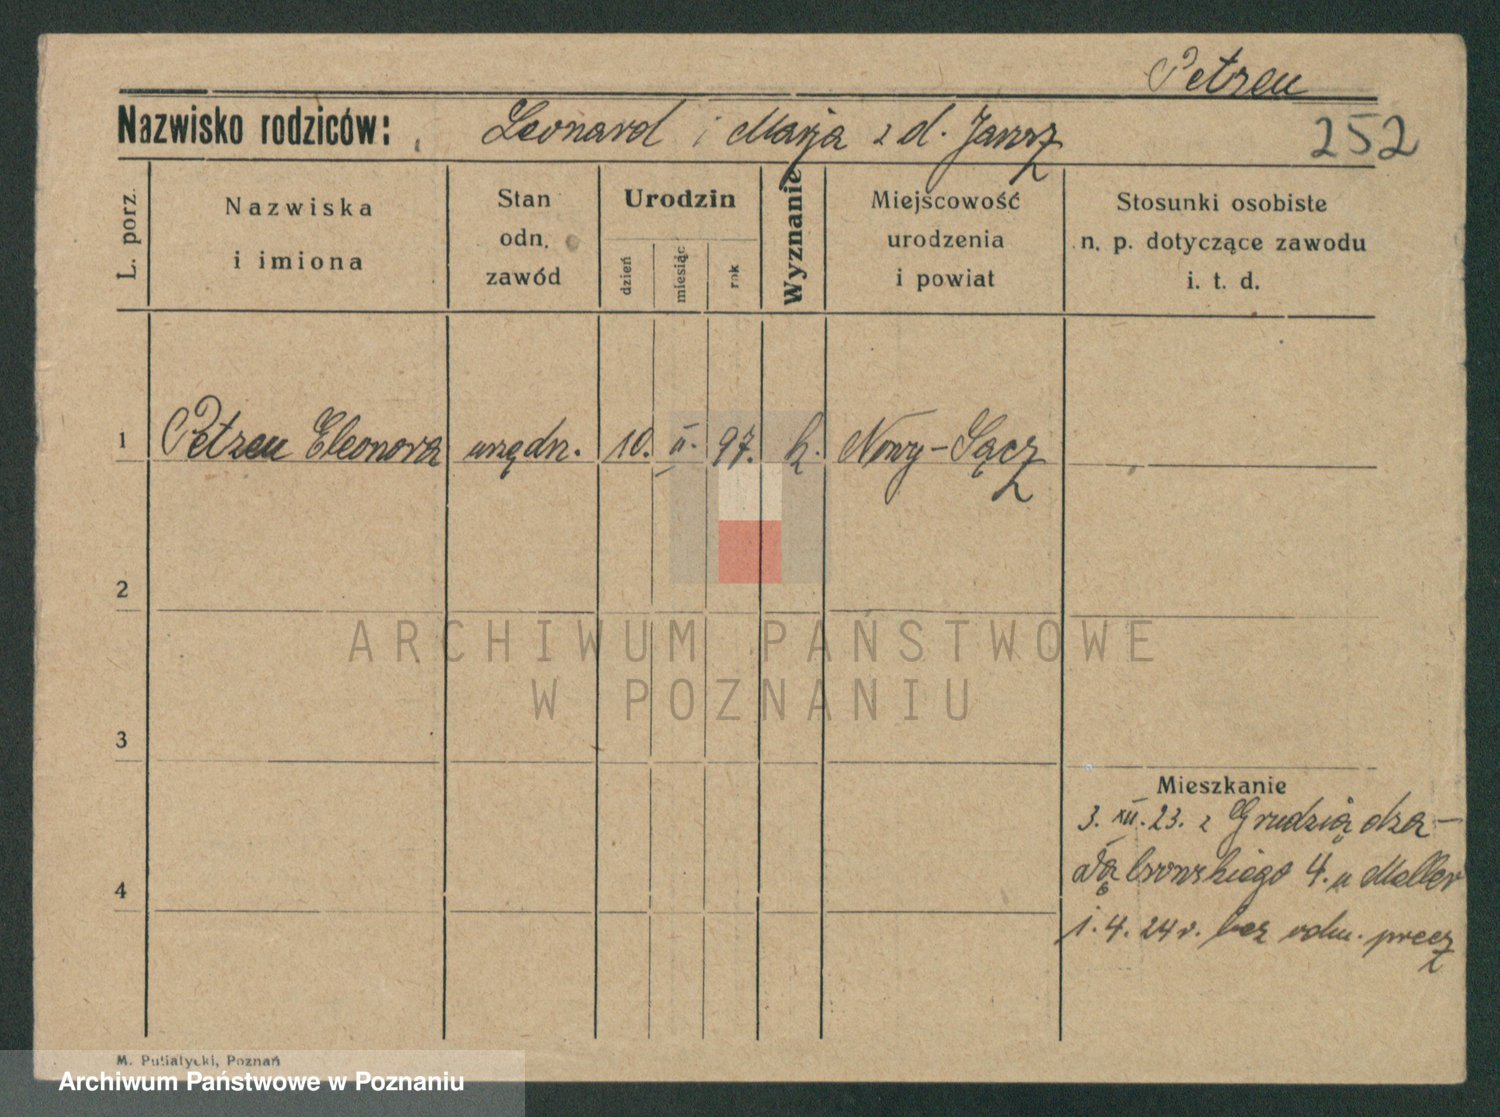 Petzeu
Nazwisko rodziców: Leonard i Marja z d. Jarosz
252
L. porz.
Nazwiska
i imiona
Stan
odn.
zawód
Urodzin
dzień
miesiąc
rok
Wyznanie
Miejscowość
urodzenia
i powiat
Stosunki osobiste
n. p. dotyczące zawodu
i. t. d.
1 Petzeu Eleonora urzędn. 10. II. 97. k. Nowy-Sącz
2
3
4
Mieszkanie
3. XII. 23. z Grudziądza-
Dąbrowskiego 4. u Meller
1. 4. 24 r. bez odm. precz
ARCHIWUM PAŃSTWOWE
W POZNANIU
M. Putiatycki, Poznań
Archiwum Państwowe w Poznaniu